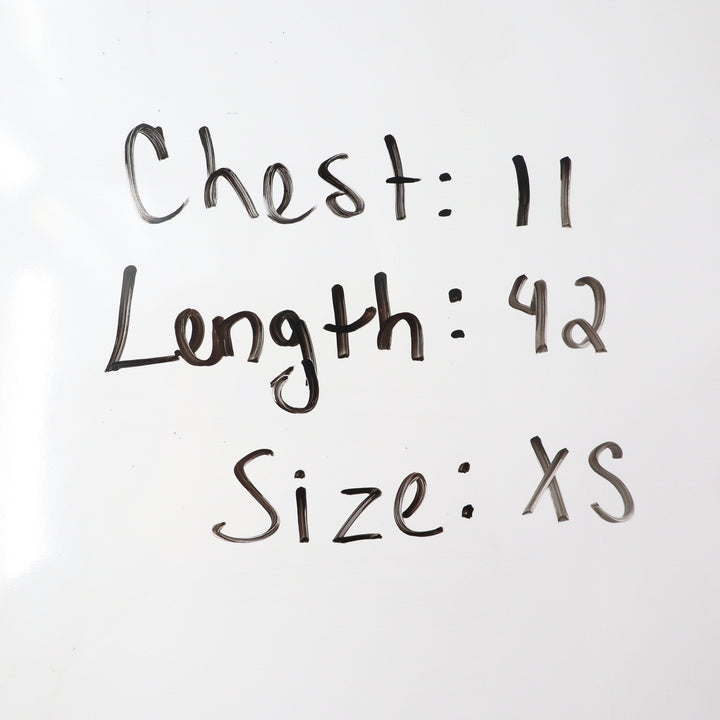 Chest: 11
Length: 42
Size: XS